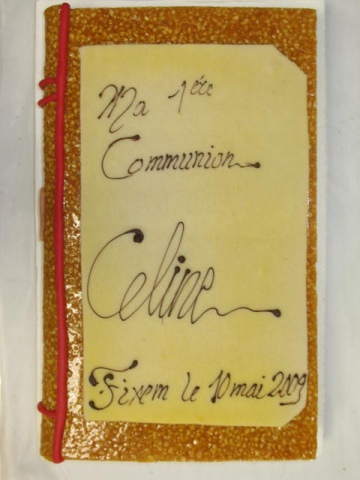 Ma 1ére
Communion
Celine
Fixem le 10 mai 2009